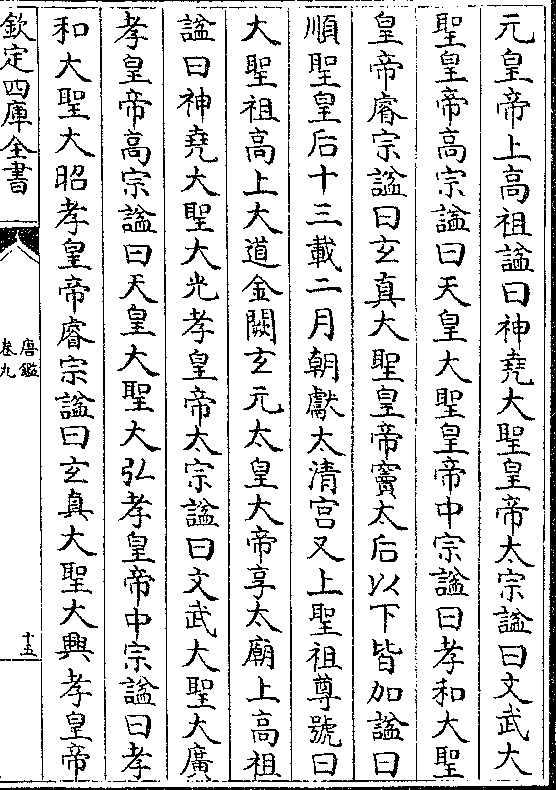 元皇帝上高祖諡曰神堯大聖皇帝太宗諡曰文武大
聖皇帝高宗諡曰天皇大聖皇帝中宗諡曰孝和大聖
皇帝睿宗諡曰玄真大聖皇帝竇太后以下皆加諡曰
順聖皇后十三載二月朝獻太清宮又上聖祖尊號曰
大聖祖高上大道金闕玄元太皇大帝享太廟上高祖
諡曰神堯大聖大光孝皇帝太宗諡曰文武大聖大廣
孝皇帝高宗諡曰天皇大聖大弘孝皇帝中宗諡曰孝
和大聖大昭孝皇帝睿宗諡曰玄真大聖大興孝皇帝
欽定四庫全書
唐鑑
卷九
十五